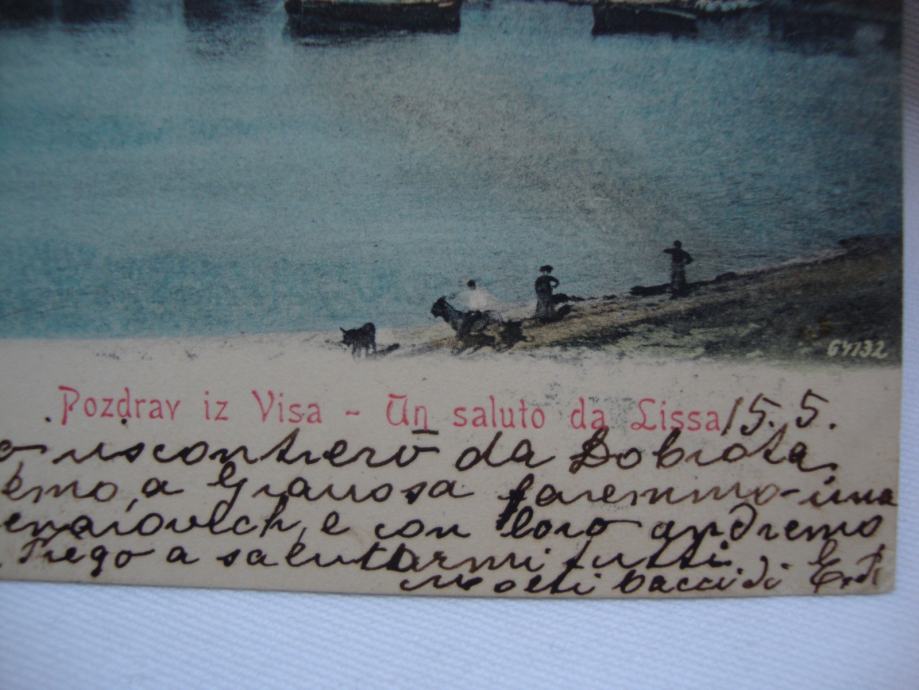 64132
Pozdrav iz Visa - Un saluto da Lissa 15.5.
o riscontrerò da Dobrota,
emo, a Gravosa faremmo una
enaiovich, e con loro andremo
Prego a saluttarmi tutti
Molti bacci di